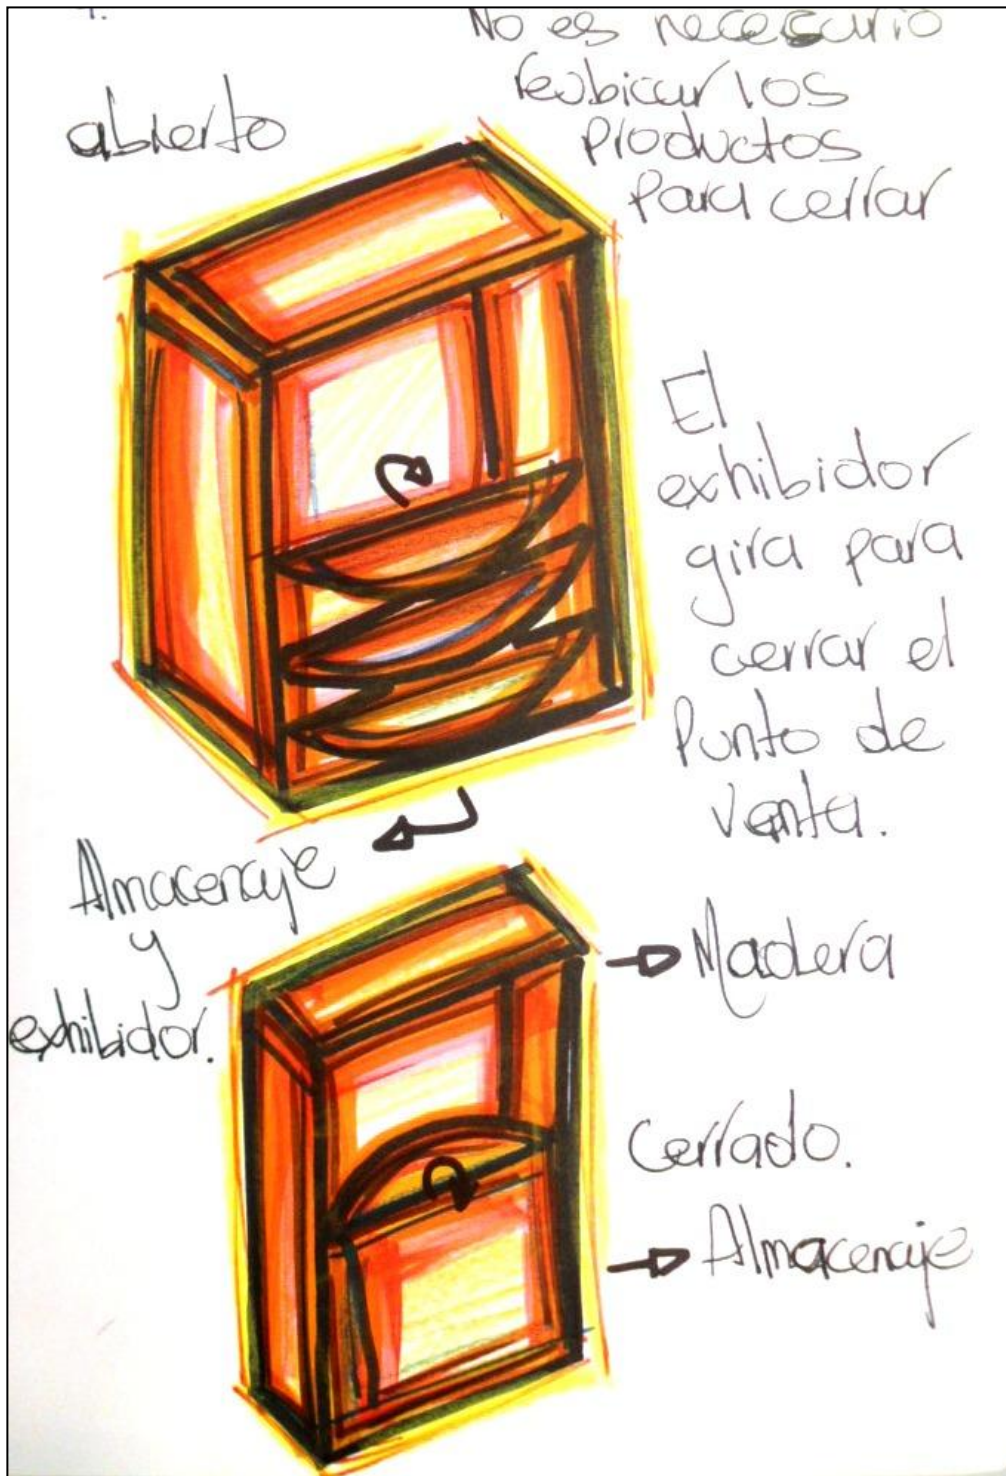 No es necesario
reubicar los
productos
para cerrar
abierto
El
exhibidor
gira para
cerrar el
Punto de
Venta.
Almacenaje
y
exhibidor.
Madera
Cerrado.
Almacenaje